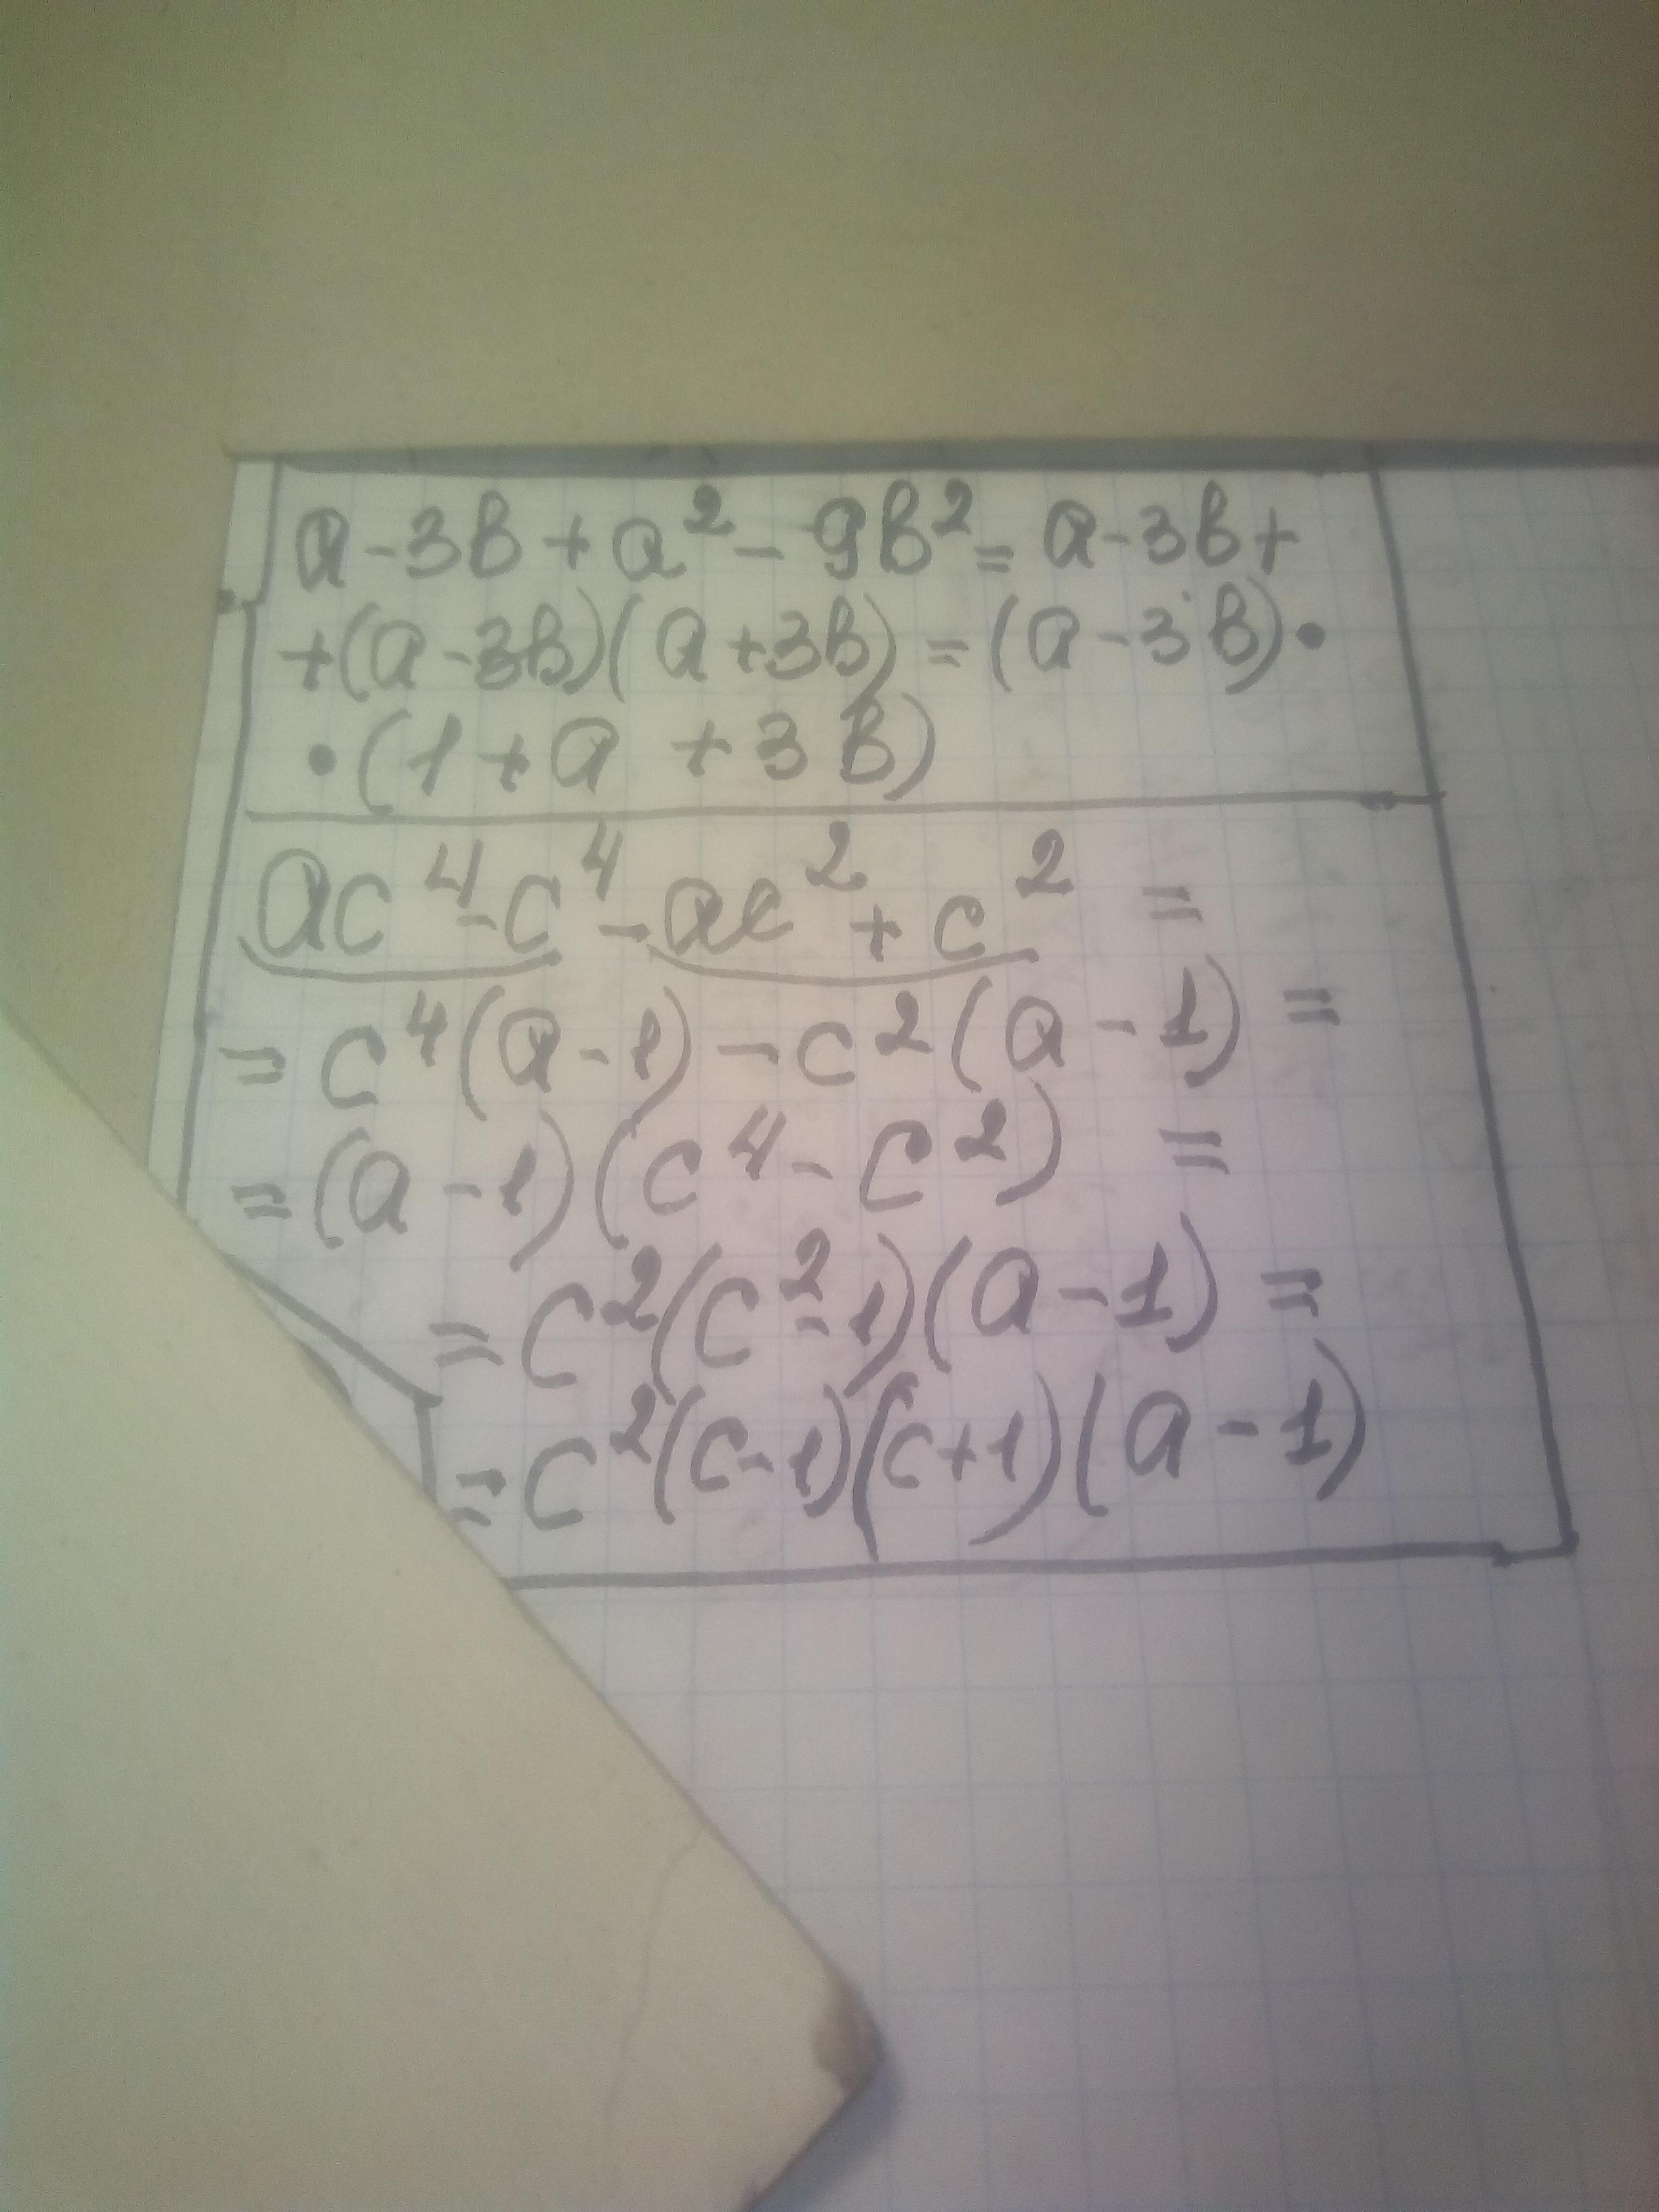 a-3b+a²-9b²=a-3b+
+(a-3b)(a+3b)=(a-3b)•
•(1+a+3b)
ac⁴-c⁴-ac²+c²=
=c⁴(a-1)-c²(a-1)=
=(a-1)(c⁴-c²)=
=c²(c²-1)(a-1)=
=c²(c-1)(c+1)(a-1)